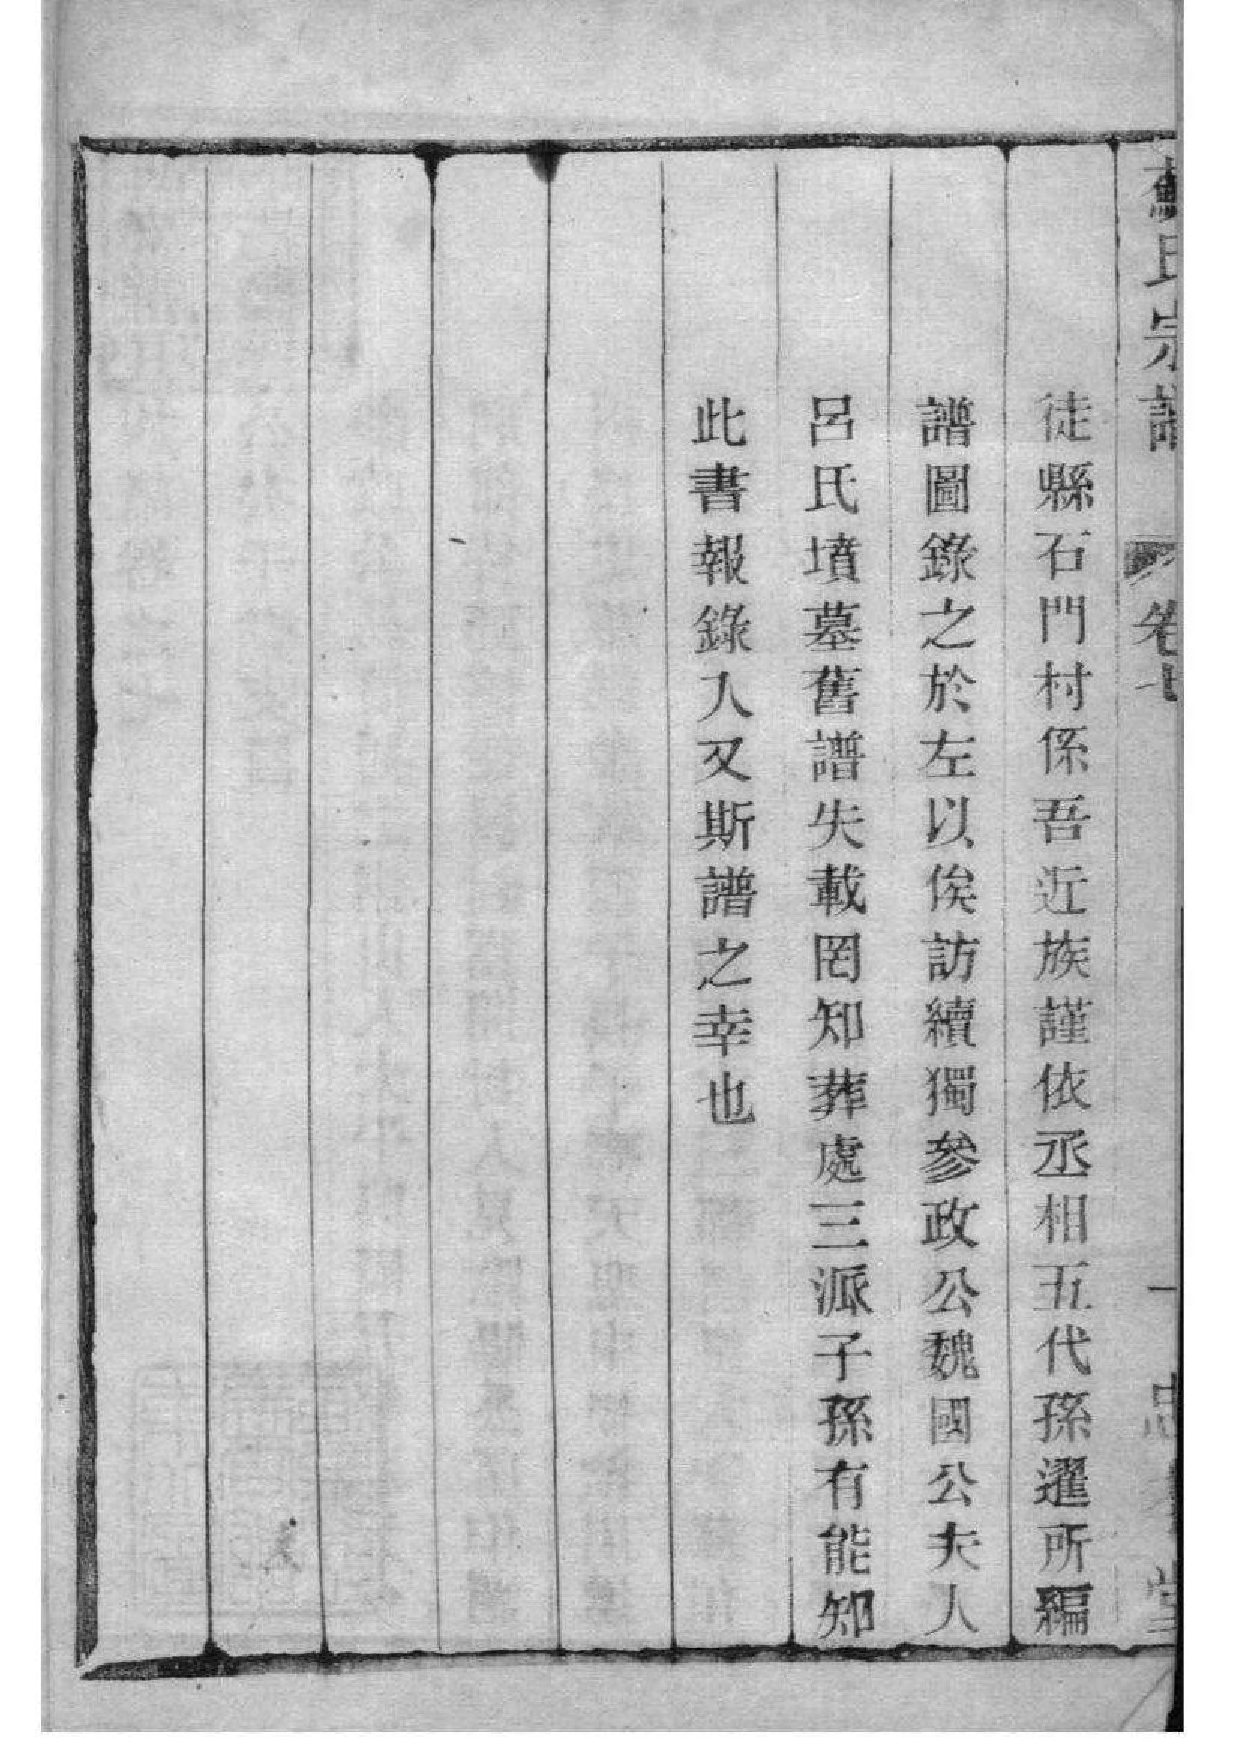 蘇氏宗譜 卷七 一 忠 堂
徒縣石門村係吾近族謹依丞相五代孫暹所編
譜圖錄之於左以俟訪續獨參政公魏國公夫人
呂氏墳墓舊譜失載罔知葬處三派子孫有能知
此書報錄入又斯譜之幸也